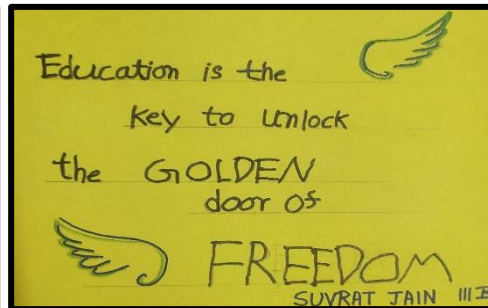 Education is the
key to unlock
the GOLDEN
door of
FREEDOM
SUVRAT JAIN III